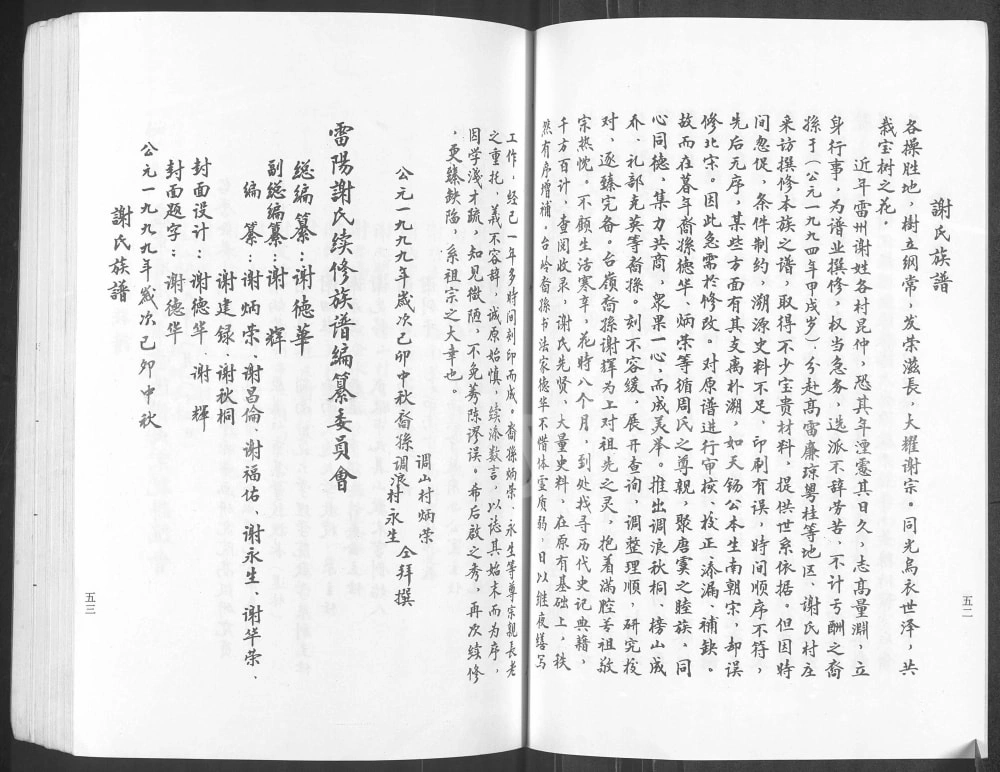 謝氏族譜
各操胜地，樹立纲常，发荣滋長，大耀谢宗。同光烏衣世泽，共
栽宝树之花。
近年雷州谢姓各村昆仲，恐其年湮憲其日久，志高量渊，立
身行事，为谱业撰修，权当急务，选派不辞劳苦、不计亏酬之裔
孫于（公元一九九四年甲戌岁）、分赴高雷廉琼粤桂等地区、谢氏村庄
采访撰修本族之谱，取得不少宝贵材料，提供世系依据。但因時
间怱促，条件制约，溯源史料不足、印刷有误，時间顺序不符，
先后无序，某些方面有其支离朴溯，如天钖公本生南朝宗，却误
修北宋。因此急需於修改。对原谱进行审核、校正、添漏、補缺。
故而在暮年裔孫德华、炳荣等循周氏之尊親，聚唐虞之睦族，同
心同德、集力共商，衆果一心，而成美举。推出调浪秋桐、榜山成
乔、礼部克英等裔孫。刻不容緩，展开查询，调整理順，研究校
对，逐臻完备。台嶺裔孫谢辉为上对祖先之灵，抱着满腔英祖敬
宗热忱。不顾生活寒辛，花時八个月，到处找寻历代史记典籍，
千方百计，查阅收录，谢氏先贤、大量史料，在原有基础上，秩
然有序增補，台岭裔孫书法家德华不惜体虚质弱，日以继夜缮写
五二
工作，经已一年多時间刻印而成。裔孫炳荣、永生等尊宗親長老
之重托，義不容辞，诚原始慎，续添数言，以誌其始末而为序，
因学浅才疏，知見微陋，不免莠陈謬误。希后啟之秀，再次续修
，更臻缺陷，系祖宗之大幸也。
公元一九九九年歲次己卯中秋裔孫
调山村炳荣
调浪村永生
仝拜撰
雷陽謝氏续修族谱编纂委員會
總编纂：谢德華
副總编纂：谢 輝
编 纂：谢炳荣、谢昌倫、谢福佑、谢永生、谢华荣、
谢建録、谢秋桐
封面设计：谢德华、谢 輝
封面题字：谢德华
公元一九九九年歲次己卯中秋
謝氏族譜
五三